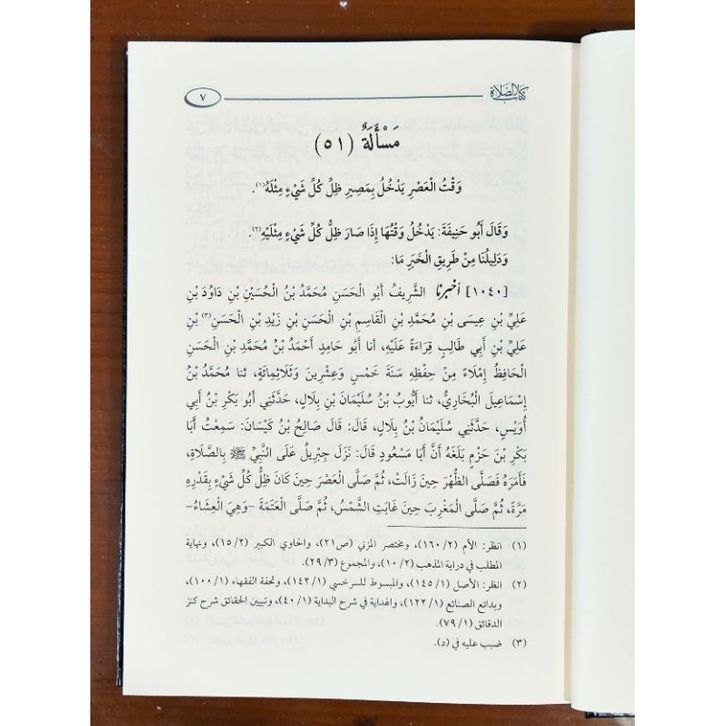 كتاب الصلاة
٧
مَسْأَلَةٌ (٥١)
وَقْتُ الْعَصْرِ يَدْخُلُ بِمَصِيرِ ظِلِّ كُلِّ شَيْءٍ مِثْلَهُ(١).
وَقَالَ أَبُو حَنِيفَةَ: يَدْخُلُ وَقْتُهَا إِذَا صَارَ ظِلُّ كُلِّ شَيْءٍ مِثْلَيْهِ(٢).
وَدَلِيلُنَا مِنْ طَرِيقِ الْخَبَرِ مَا:
[١٠٤٠] أخبرنا الشَّرِيفُ أَبُو الْحَسَنِ مُحَمَّدُ بْنُ الْحُسَيْنِ بْنِ دَاوُدَ بْنِ
عَلِيِّ بْنِ عِيسَى بْنِ مُحَمَّدِ بْنِ الْقَاسِمِ بْنِ الْحَسَنِ بْنِ زَيْدِ بْنِ الْحَسَنِ(٣) بْنِ
عَلِيِّ بْنِ أَبِي طَالِبٍ قِرَاءَةً عَلَيْهِ، أنا أَبُو حَامِدٍ أَحْمَدُ بْنُ مُحَمَّدِ بْنِ الْحَسَنِ
الْحَافِظُ إِمْلَاءً مِنْ حِفْظِهِ سَنَةَ خَمْسٍ وَعِشْرِينَ وَثَلَاثِمِائَةٍ، ثنا مُحَمَّدُ بْنُ
إِسْمَاعِيلَ الْبُخَارِيُّ، ثنا أَيُّوبُ بْنُ سُلَيْمَانَ بْنِ بِلَالٍ، حَدَّثَنِي أَبُو بَكْرِ بْنُ أَبِي
أُوَيْسٍ، حَدَّثَنِي سُلَيْمَانُ بْنُ بِلَالٍ، قَالَ: قَالَ صَالِحُ بْنُ كَيْسَانَ: سَمِعْتُ أَبَا
بَكْرِ بْنَ حَزْمٍ بَلَغَهُ أَنَّ أَبَا مَسْعُودٍ قَالَ: نَزَلَ جِبْرِيلُ عَلَى النَّبِيِّ ﷺ بِالصَّلَاةِ،
فَأَمَرَهُ فَصَلَّى الظُّهْرَ حِينَ زَالَتْ، ثُمَّ صَلَّى الْعَصْرَ حِينَ كَانَ ظِلُّ كُلِّ شَيْءٍ بِقَدْرِهِ
مَرَّةً، ثُمَّ صَلَّى الْمَغْرِبَ حِينَ غَابَتِ الشَّمْسُ، ثُمَّ صَلَّى الْعَتَمَةَ -وَهِيَ الْعِشَاءُ-
(١) انظر: الأم (٢/ ١٦٠)، ومختصر المزني (ص٢١)، والحاوي الكبير (٢/ ١٥)، ونهاية
المطلب في دراية المذهب (٢/ ١٠)، والمجموع (٣/ ٢٩).
(٢) انظر: الأصل (١/ ١٤٥)، والمبسوط للسرخسي (١/ ١٤٢)، وتحفة الفقهاء (١/ ١٠٠)،
وبدائع الصنائع (١/ ١٢٢)، والهداية في شرح البداية (١/ ٤٠)، وتبيين الحقائق شرح كنز
الدقائق (١/ ٧٩).
(٣) ضبب عليه في (د).